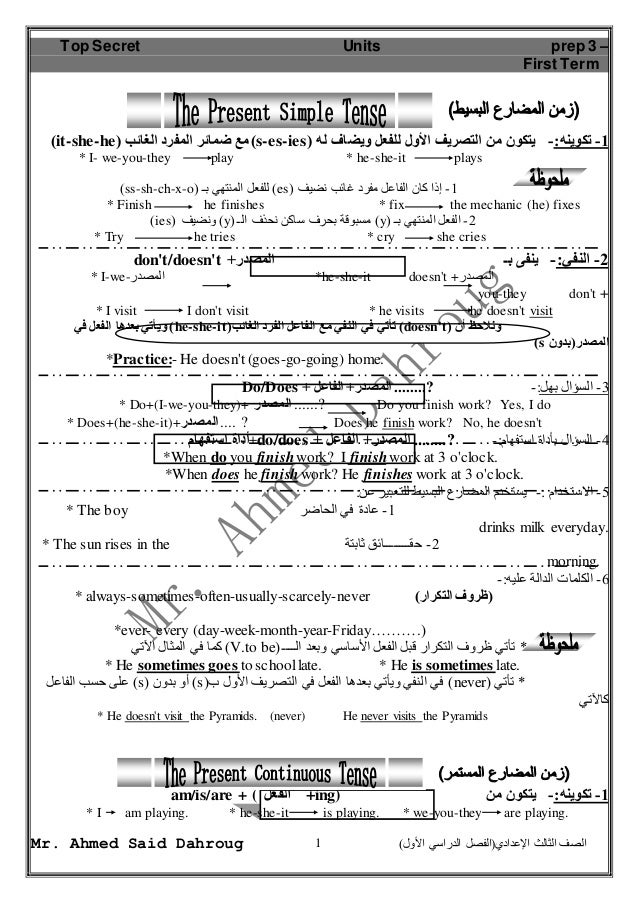 Top Secret Units prep 3 –
First Term
The Present Simple Tense (زمن المضارع البسيط)
1- تكوينه:- يتكون من التصريف الأول للفعل ويضاف له (s-es-ies) مع ضمائر المفرد الغائب (it-she-he)
* I- we-you-they play * he-she-it plays
ملحوظة
1- إذا كان الفاعل مفرد غائب نضيف (es) للفعل المنتهي بـ (ss-sh-ch-x-o)
* Finish he finishes * fix the mechanic (he) fixes
2- الفعل المنتهي بـ (y) مسبوقة بحرف ساكن نحذف الـ(y) ونضيف (ies)
* Try he tries * cry she cries
2- النفي:- ينفى بـ don't/doesn't +المصدر
* I-we-المصدر *he-she-it doesn't +المصدر
you-they don't +
* I visit I don't visit * he visits he doesn't visit
ونلاحظ أن (doesn't) تأتي في النفي مع الفاعل الفرد الغائب(he-she-it) ويأتي بعدها الفعل في
المصدر(بدون s)
*Practice:- He doesn't (goes-go-going) home.
3- السؤال بهل:- Do/Does + المصدر+ الفاعل ........?
* Do+(I-we-you-they)+ المصدر ......? Do you finish work? Yes, I do
* Does+(he-she-it)+المصدر .... ? Does he finish work? No, he doesn't
4- السؤال بأداة استفهام:- أداة استفهام+do/does + المصدر+ الفاعل ........?
*When do you finish work? I finish work at 3 o'clock.
*When does he finish work? He finishes work at 3 o'clock.
5- الاستخدام :- يستخدم المضارع البسيط للتعبير عن:
1- عادة في الحاضر * The boy
drinks milk everyday.
2- حقـــــــائق ثابتة * The sun rises in the
morning.
6- الكلمات الدالة عليه:-
* always-sometimes-often-usually-scarcely-never (ظروف التكرار)
*ever- every (day-week-month-year-Friday……….)
ملحوظة
* تأتي ظروف التكرار قبل الفعل الأساسي وبعد الــــ(V.to be) كما في المثال الآتي
* He sometimes goes to school late. * He is sometimes late.
* تأتي (never) في النفي ويأتي بعدها الفعل في التصريف الأول ب(s) أو بدون (s) على حسب الفاعل
كالآتي
* He doesn't visit the Pyramids. (never) He never visits the Pyramids
The Present Continuous Tense (زمن المضارع المستمر)
1- تكوينه:- يتكون من am/is/are + ( الفعل +ing)
* I am playing. * he-she-it is playing. * we-you-they are playing.
Mr. Ahmed Said Dahroug 1 الصف الثالث الإعدادي(الفصل الدراسي الأول)
Mr. Ahmed Dahroug